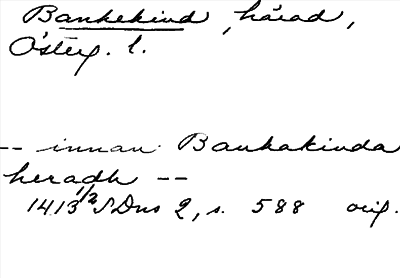 Bankekind, härad,
Österg. l.
-- innan Bankakinda
heradh --
1413 1/2 SDns 2, s. 588 orig.